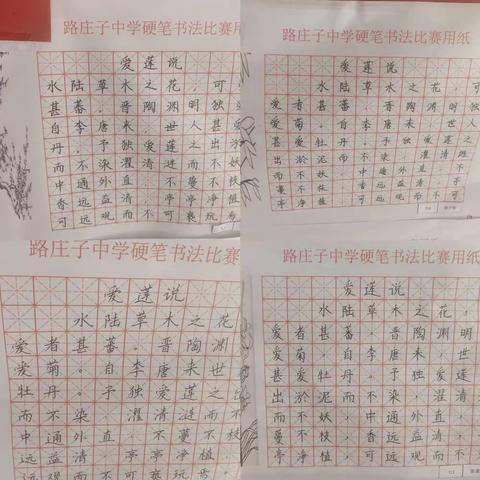 路庄子中学硬笔书法比赛用
爱莲说
水陆草木之花，可
甚蕃。晋陶渊明独
自李唐来，世人甚爱
丹。予独爱莲之出
而不染濯清涟而不妖
中通外直，不蔓不枝
香远益清，亭亭净植
可远观而不可亵玩焉
路庄子中学硬笔书法比赛用纸
爱莲说
水陆草木之花，可
爱者甚蕃。晋陶渊明独
爱菊。自李唐来，世人
甚爱牡丹。予独爱莲之
出淤泥而不染，濯清涟
而不妖，中通外直，不
蔓不枝，香远益清，亭
亭净植，可远观而不可
路庄子中学硬笔书法比赛
爱莲说
水陆草木之花
爱者甚蕃。晋陶渊
爱菊。自李唐来世
牡丹。予独爱莲之出
而不染，濯清涟而不
中通外直，不蔓不枝
远益清，亭亭净植。
远观而不可亵玩焉
路庄子中学硬笔书法比赛用纸
爱莲说
水陆草木之花，
爱者甚蕃，晋陶渊明
爱菊，自李唐来，世
甚爱牡丹，予独爱莲
出淤泥而不染，濯清
而不妖，中通外直，
蔓不枝，香远益清，
亭净植，可远观而不